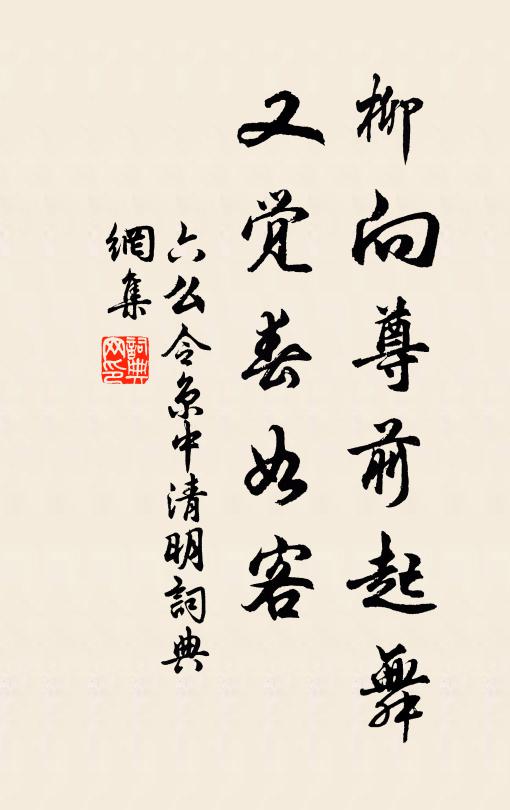 柳向尊前起舞
又觉春如客
六么令京中清明詞典
網集
詞典网印